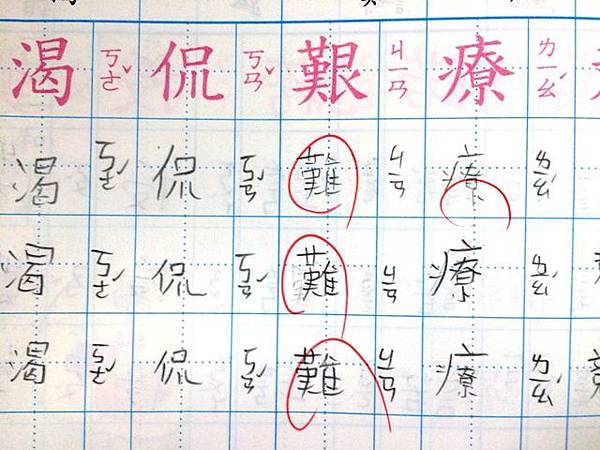 渴 ㄎㄜˇ 侃 ㄎㄢˇ 艱 ㄐㄧㄢ 療 ㄌㄧㄠˊ
渴 ㄎㄜˇ 侃 ㄎㄢˇ 難 ㄐㄧㄢ 療 ㄌㄧㄠˊ
渴 ㄎㄜˇ 侃 ㄎㄢˇ 難 ㄐㄧㄢ 療 ㄌㄧㄠˊ
渴 ㄎㄜˇ 侃 ㄎㄢˇ 難 ㄐㄧㄢ 療 ㄌㄧㄠˊ